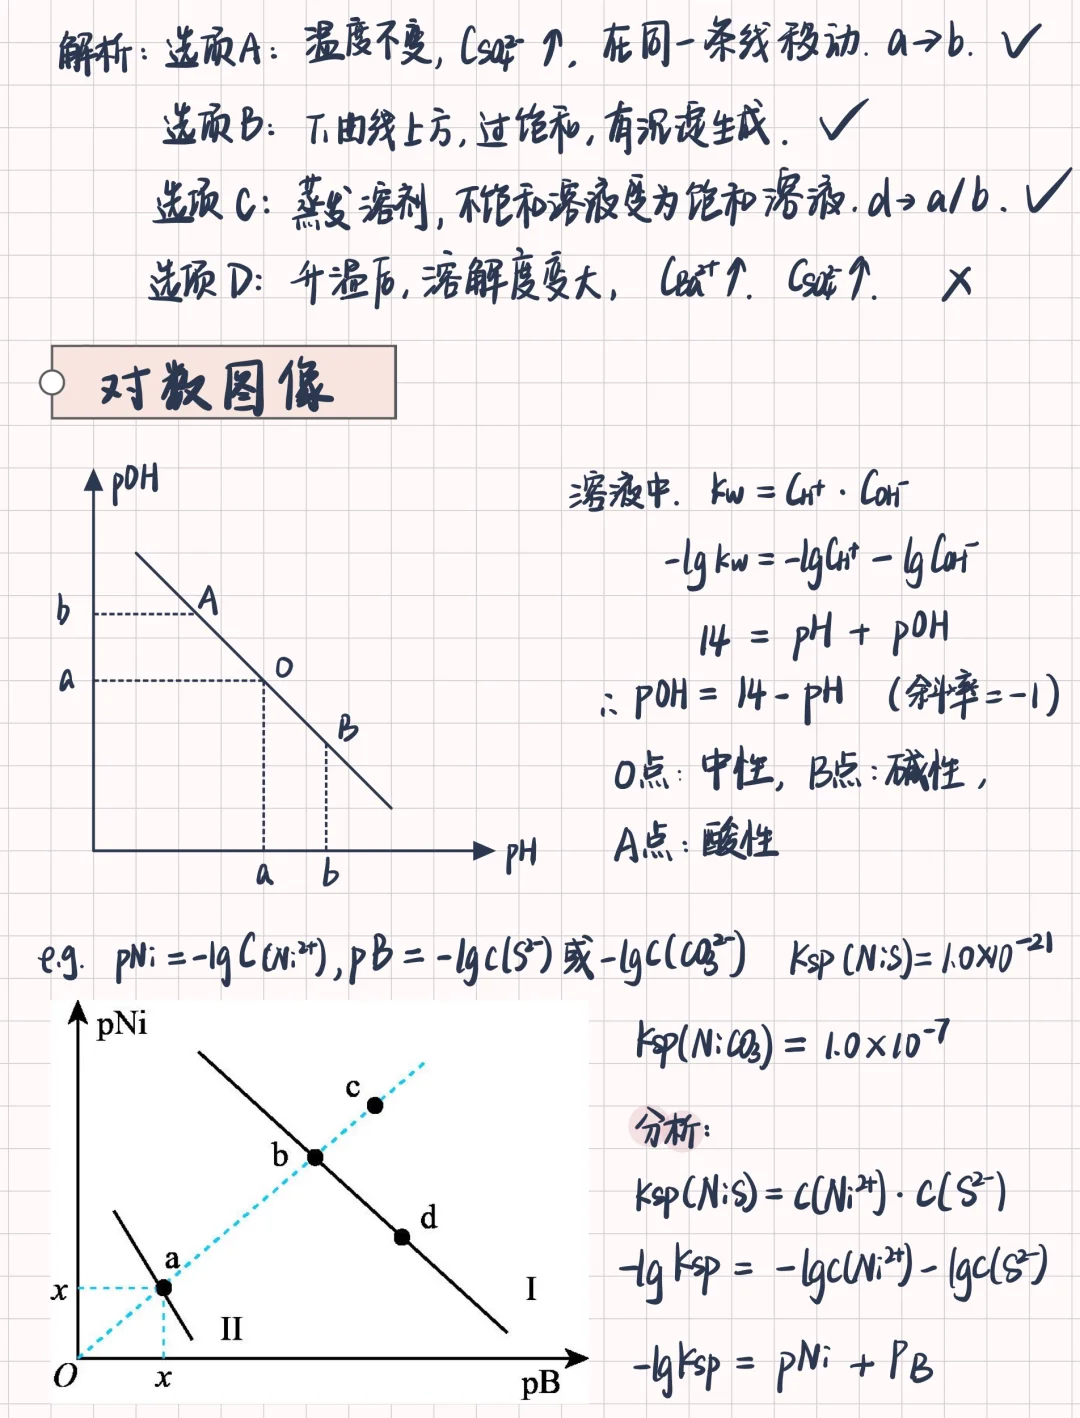 解析：选项A：温度不变，C_{SO₄²⁻}↑，在同一条线移动. a→b. ✓
选项B：T₁曲线上方，过饱和，有沉淀生成. ✓
选项C：蒸发溶剂，不饱和溶液变为饱和溶液. d→a/b. ✓
选项D：升温后，溶解度变大，C_{Ba²⁺}↑. C_{SO₄²⁻}↑. ×
对数图像
pOH
b
a
A
O
B
a
b
pH
溶液中. Kw = C_{H⁺} · C_{OH⁻}
-lg Kw = -lgC_{H⁺} - lg C_{OH⁻}
14 = pH + pOH
∴ pOH = 14 - pH （斜率=-1）
O点：中性，B点：碱性，
A点：酸性
e.g. pNi = -lg C(Ni²⁺), pB = -lg c(S²⁻) 或 -lg C(CO₃²⁻) Ksp(NiS) = 1.0×10⁻²¹
Ksp(NiCO₃) = 1.0×10⁻⁷
pNi
c
b
d
a
x
I
II
O
x
pB
分析：
Ksp(NiS) = c(Ni²⁺) · c(S²⁻)
-lg Ksp = -lgc(Ni²⁺) - lgc(S²⁻)
-lgKsp = pNi + PB